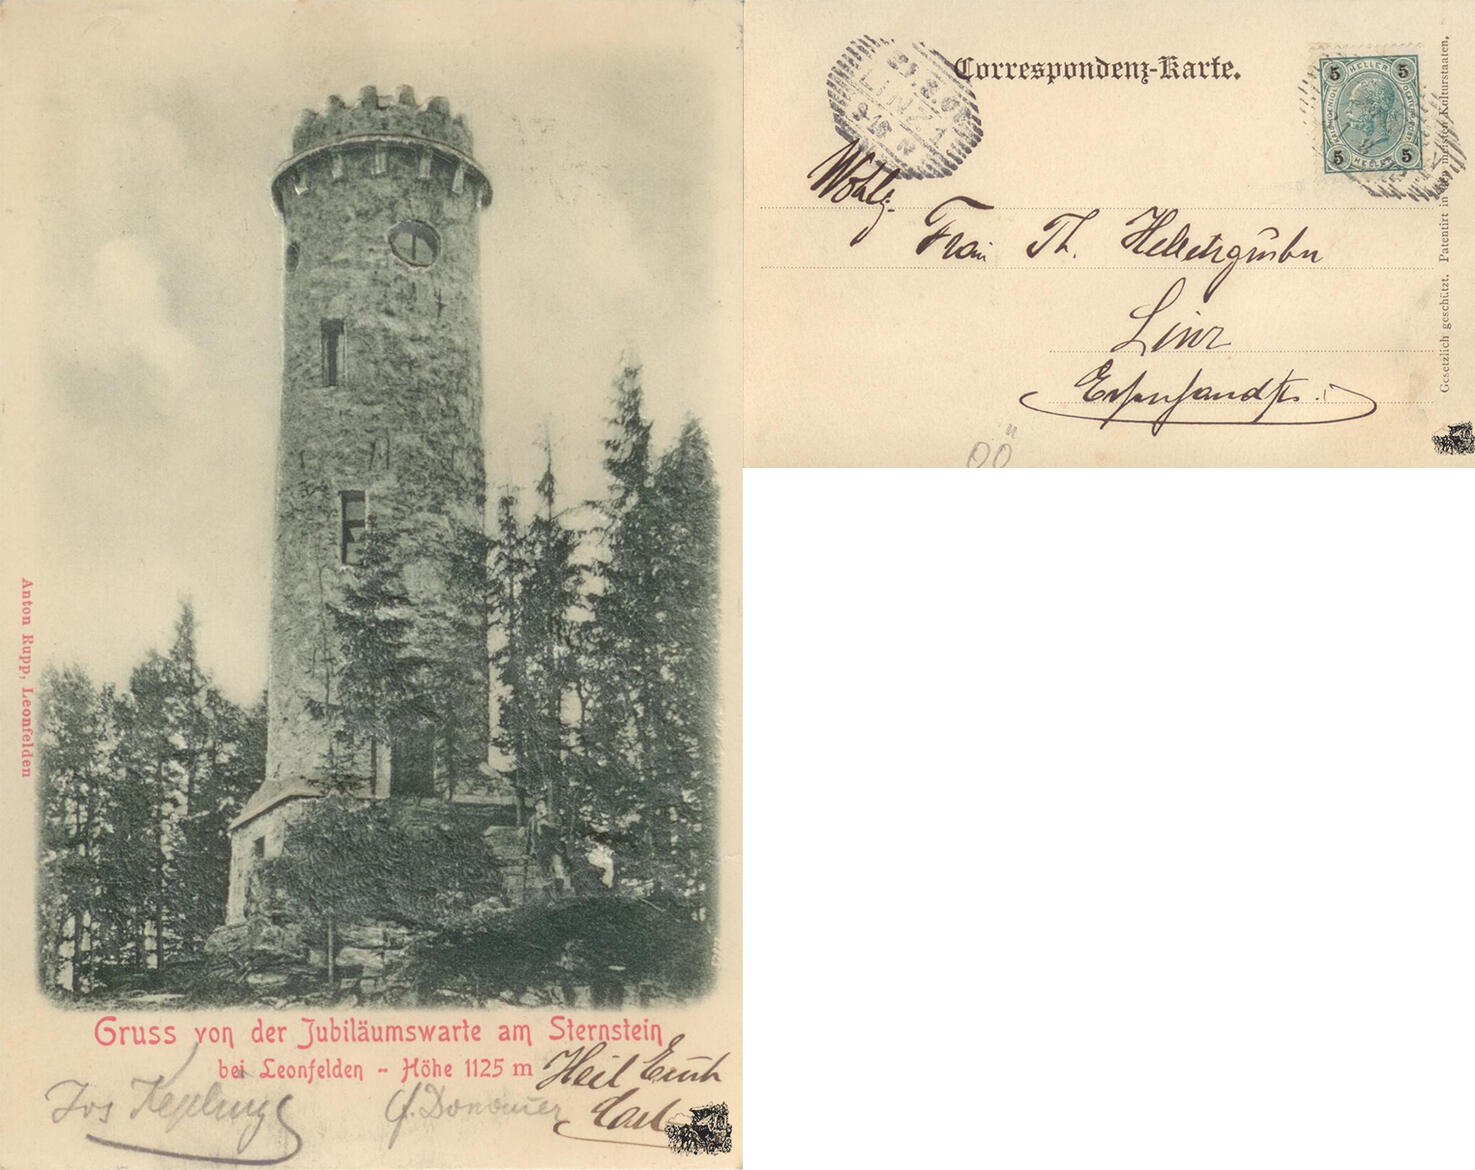 Anton Rupp, Leonfelden
Gruss von der Jubiläumswarte am Sternstein
bei Leonfelden - Höhe 1125 m
Heil Euch
Carl
Jos
Donauer
Correspondenz-Karte.
LINZ 1
5 HELLER 5
5 HELLER 5
Wohlg.
Frau Th.
Linz
Gesetzlich geschützt. Patentirt in den meisten Kulturstaaten.